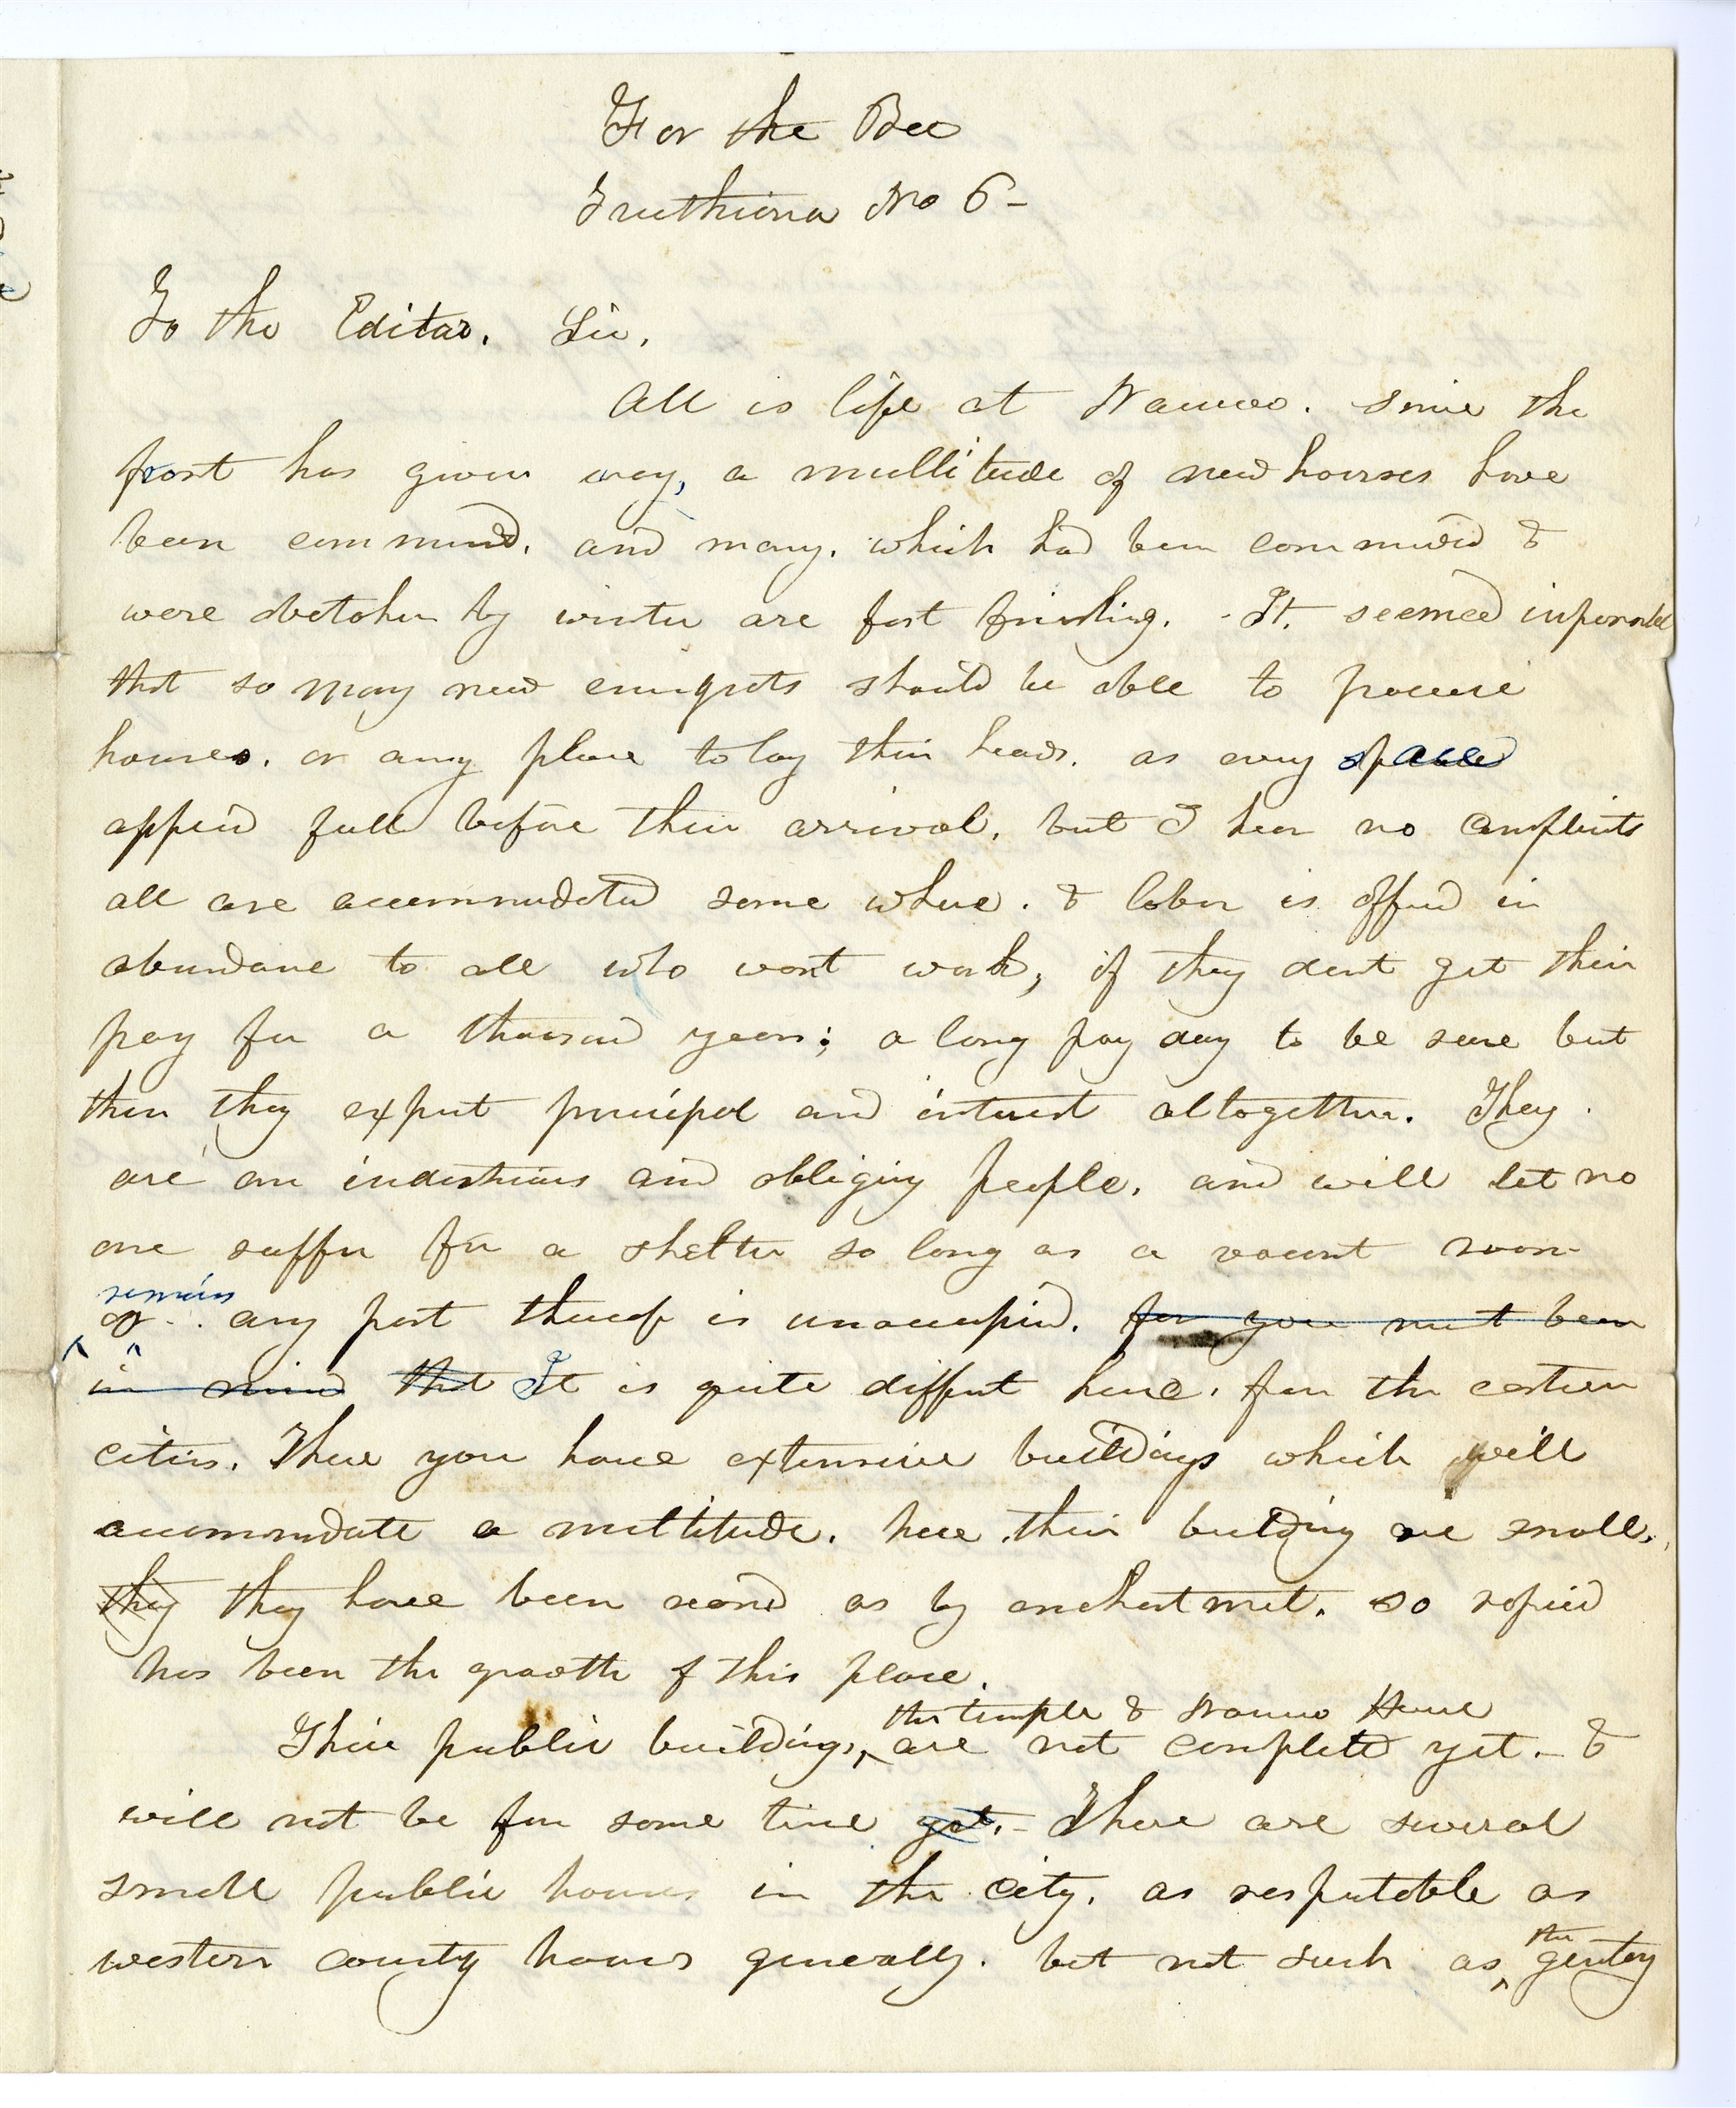 For the Bee
Truthiana No 6-
To the Editor. Sir,
All is life at Nauvoo. since the
frost has given way, a multitude of new houses have
been commencd. and many. which had been commencd &
were overtaken by winter are fast finishing. - It. seemed impossible
that so many new emigrats should be able to procure
houses. or any place to lay their heads. as every space
appeard full before their arrival. but I hear no complaints
all are accommodated some where. & labor is offerd in
abundance to all who want work, if they dont get their
pay for a thousand years; a long pay day to be sure but
then they expect principal and interest altogether. They
are an industrious and obliging people. and will let no
one suffer for a shelter so long as a vacant room
remains
or any part thereof is unoccupied. for you must bear
in mind that It is quite differnt here. from the eastern
cities. There you have extensive buildings which will
accommodate a multitude. here their building are small.
they they have been reard as by enchantment. so rapid
has been the growth of this place.
the temple & Nauvoo House
Their public buildings, are not completed yet. - &
will not be for some time yet. - There are several
small public houses in the city. as respectable as
the
western county houses generally. but not such as gentry